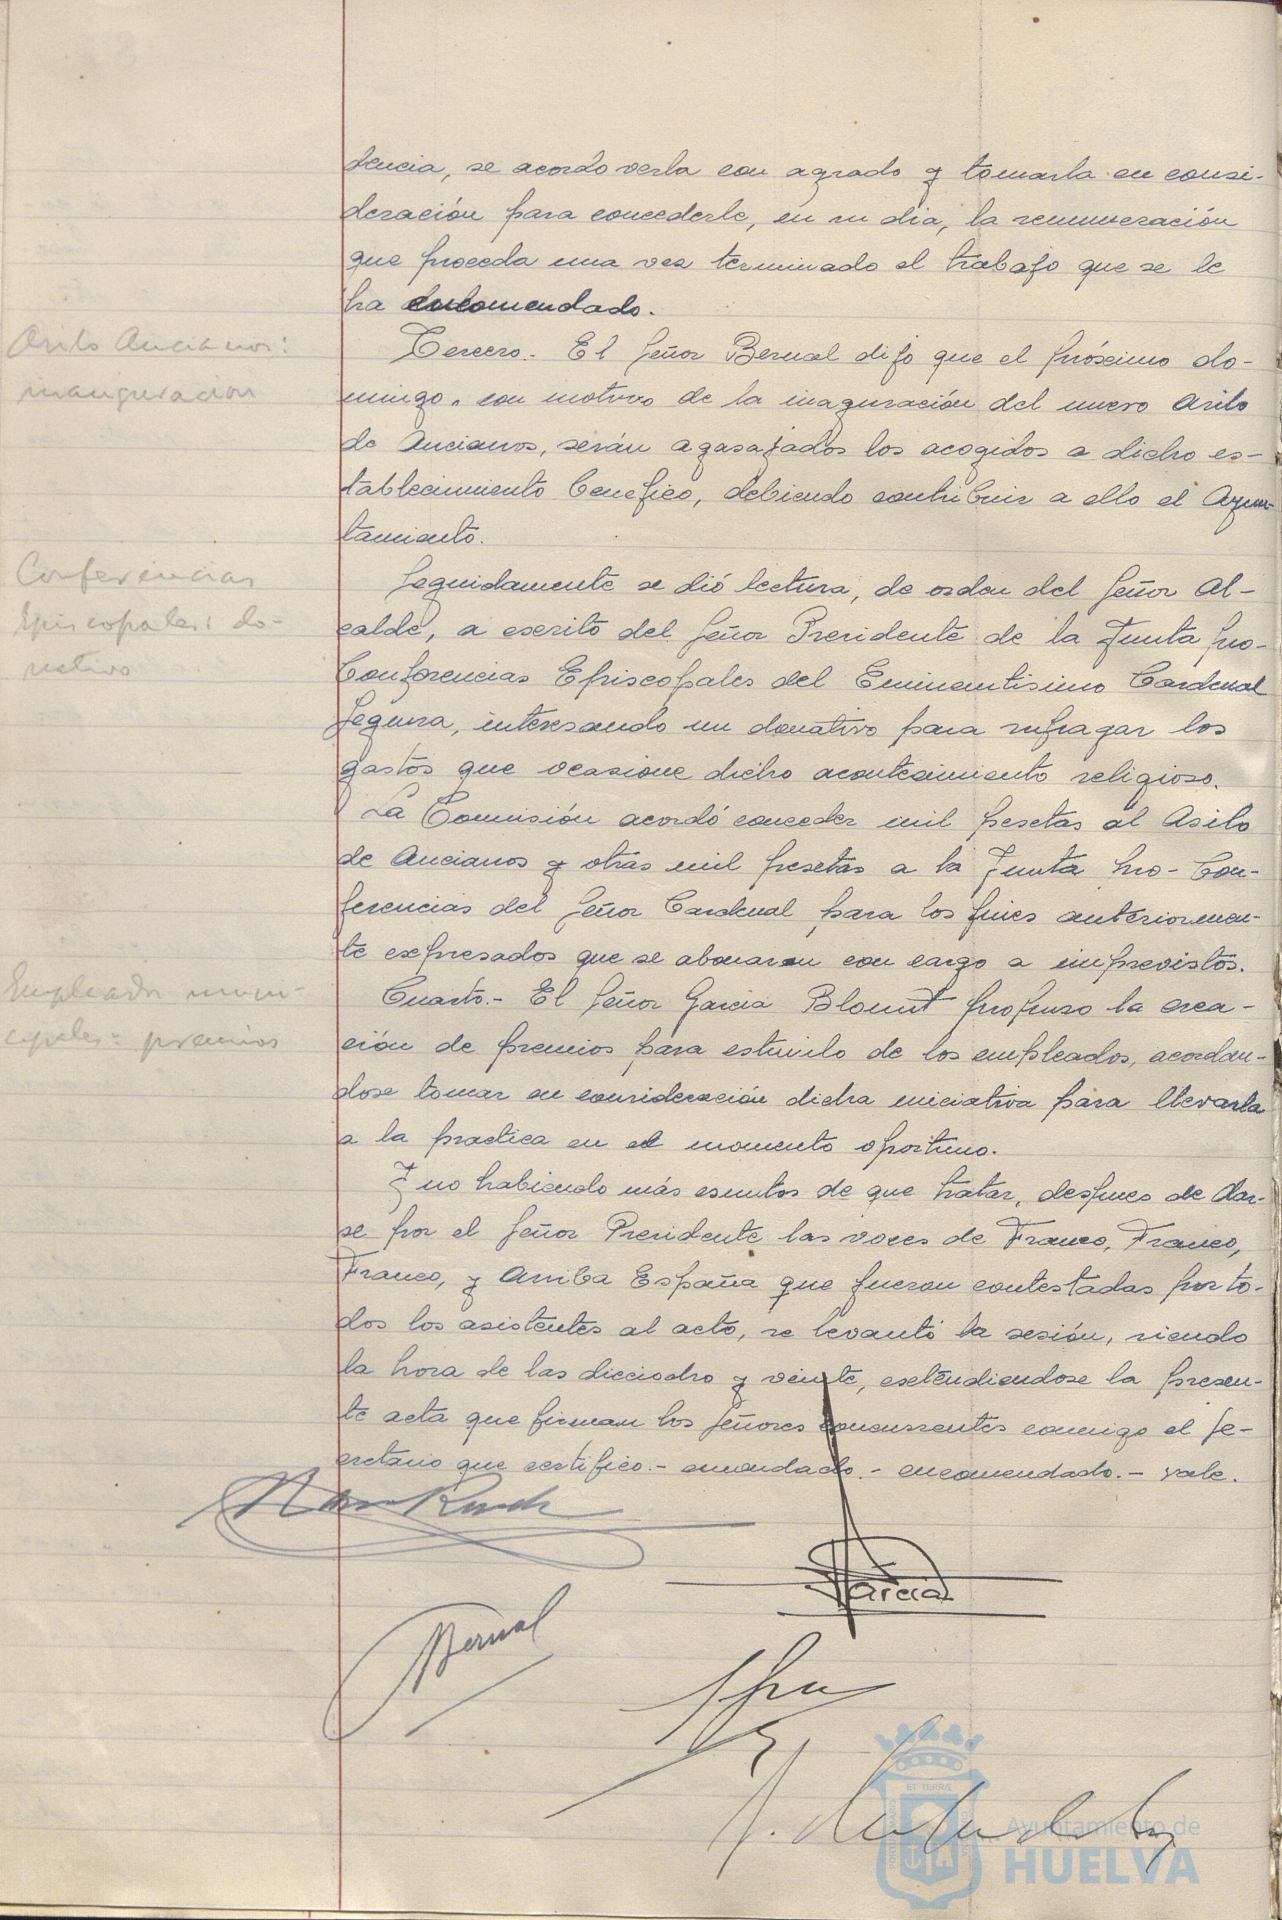 dencia, se acordo verla con agrado y tomarla en consi-
deración para concederle, en su dia, la remuneración
que proceda una vez terminado el trabajo que se le
ha encomendado.
Asilo Ancianos:
inauguracion
Tercero.- El Señor Bernal dijo que el próximo do-
mingo, con motivo de la inaguración del nuevo Asilo
de Ancianos, serán agasajados los acogidos a dicho es-
tablecimiento benefico, debiendo contribuir a ello el Ayun-
tamiento.
Conferencias
Episcopales: do-
nativo
Seguidamente se dió lectura, de orden del Señor Al-
calde, a escrito del Señor Presidente de la Junta pro-
Conferencias Episcopales del Eminentisimo Cardenal
Segura, interesando un donativo para sufragar los
gastos que ocasione dicho acontecimiento religioso.
La Comisión acordó conceder mil pesetas al Asilo
de Ancianos y otras mil pesetas a la Junta pro- Con-
ferencias del Señor Cardenal para los fines anteriormen-
te expresados que se abonaran con cargo a imprevistos.
Empleados muni-
cipales: premios
Cuarto.- El Señor Garcia Blount propuso la crea-
ción de premios para estimilo de los empleados, acordan-
dose tomar en consideración dicha iniciativa para llevarla
a la practica en el momento oportuno.
Y no habiendo más asuntos de que tratar, despues de dar-
se por el Señor Presidente las voces de Franco, Franco,
Franco, y Arriba España que fueron contestadas por to-
dos los asistentes al acto, se levantó la sesión, siendo
la hora de las dieciocho y veinte, extendiendose la presen-
te acta que firman los Señores concurrentes conmigo el Se-
cretario que certifico.- enmendado.- encomendado.- vale.
Garcia
Bernal
ET TERRÆ
Ayuntamiento de
HUELVA